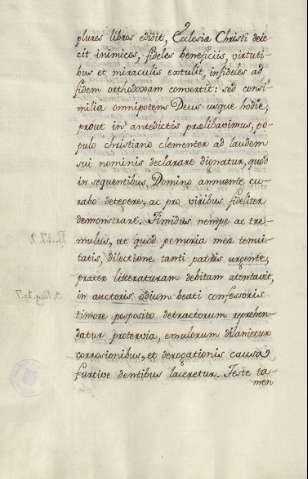 plures libros edidit, Ecclesia Christi deie
cit inimicos, fideles beneficiis, virtuti
bus et miraculis extulit, infideles ad
fidem orthodoxam convertit: sed consi
milia omnipotens Deus usque hodie,
prout in antedictis prælibavimus, po,
pulo christiano clementer ad laudem
sui nominis declarare dignatur, quod
in sequentibus, Domino annuente, cu,
rabo detegere, ac pro viribus fideliter
demonstrare. Timidus nempe ac tre,
mulus, ut quod penuria mea tenui,
tatis, dilectione tanti patris urgente,
præter litteraturam debitam atentavit,
in auctoris odium beati confessoris
timore posposito detractorum reprehen
datur protervia, emulorum dilanietur
corrosionibus, et derogationis causa
furtive dentibus laceretur. Teste ta
men